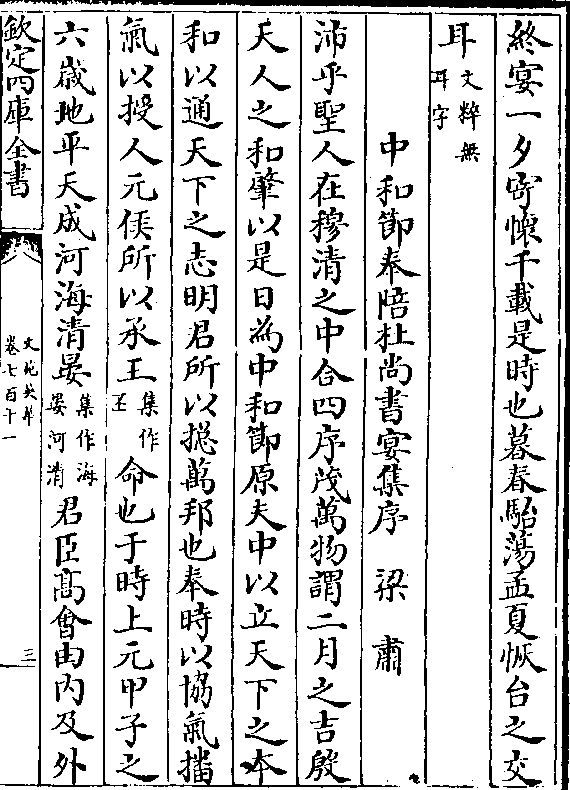 終宴一夕寄懷千載是時也暮春駘蕩孟夏恢台之交
耳文粹無耳字
中和節奉陪杜尚書宴集序 梁肅
沛乎聖人在穆清之中合四序茂萬物謂二月之吉殷
天人之和肇以是日為中和節原夫中以立天下之本
和以通天下之志明君所以揔萬邦也奉時以協氣播
氣以授人元侯所以承王集作丕命也于時上元甲子之
六歲地平天成河海清晏集作海晏河清君臣髙會由内及外
欽定四庫全書
文苑英華
卷七百十一
三